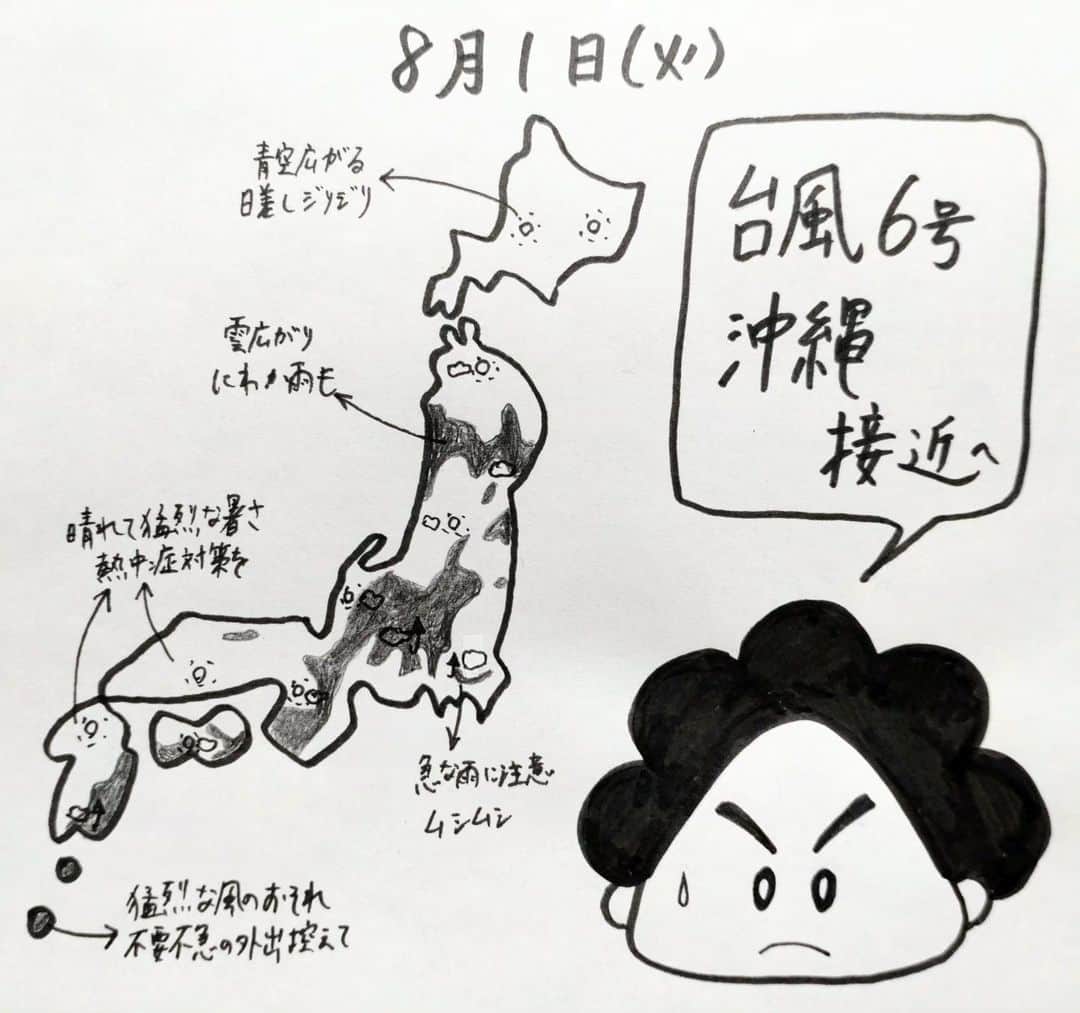 8月1日(火)
台風6号
沖縄
接近へ
青空広がる
日差しジリジリ
雲広がり
にわか雨も
晴れて猛烈な暑さ
熱中症対策を
急な雨に注意
ムシムシ
猛烈な風のおそれ
不要不急の外出は控えて